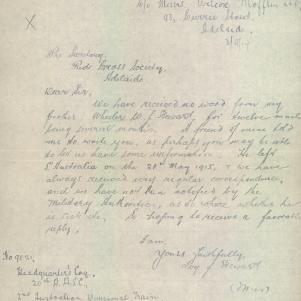 C/o Messrs. Wilcox Mofflin Ltd
Currie Street,
Adelaide.
The Secretary,
Red Cross Society,
Adelaide
Dear Sir,
We have received no word from my
brother, Wheeler W. J. Stewart, for twelve months
being several months. A friend of mine told
me to write you, as perhaps you may be able
to let us have some information. He left
S. Australia on the 20th May 1915, & we have
always received very regular correspondence,
and we have not been notified by the
Military Authorities, as to where, whether he
is sick etc. So hoping to receive a favorable
reply.
I am,
Yours faithfully,
J. Stewart
No 9021
Headquarter's Coy.
20th A.A.S.C.
2nd Australian Divisional Train